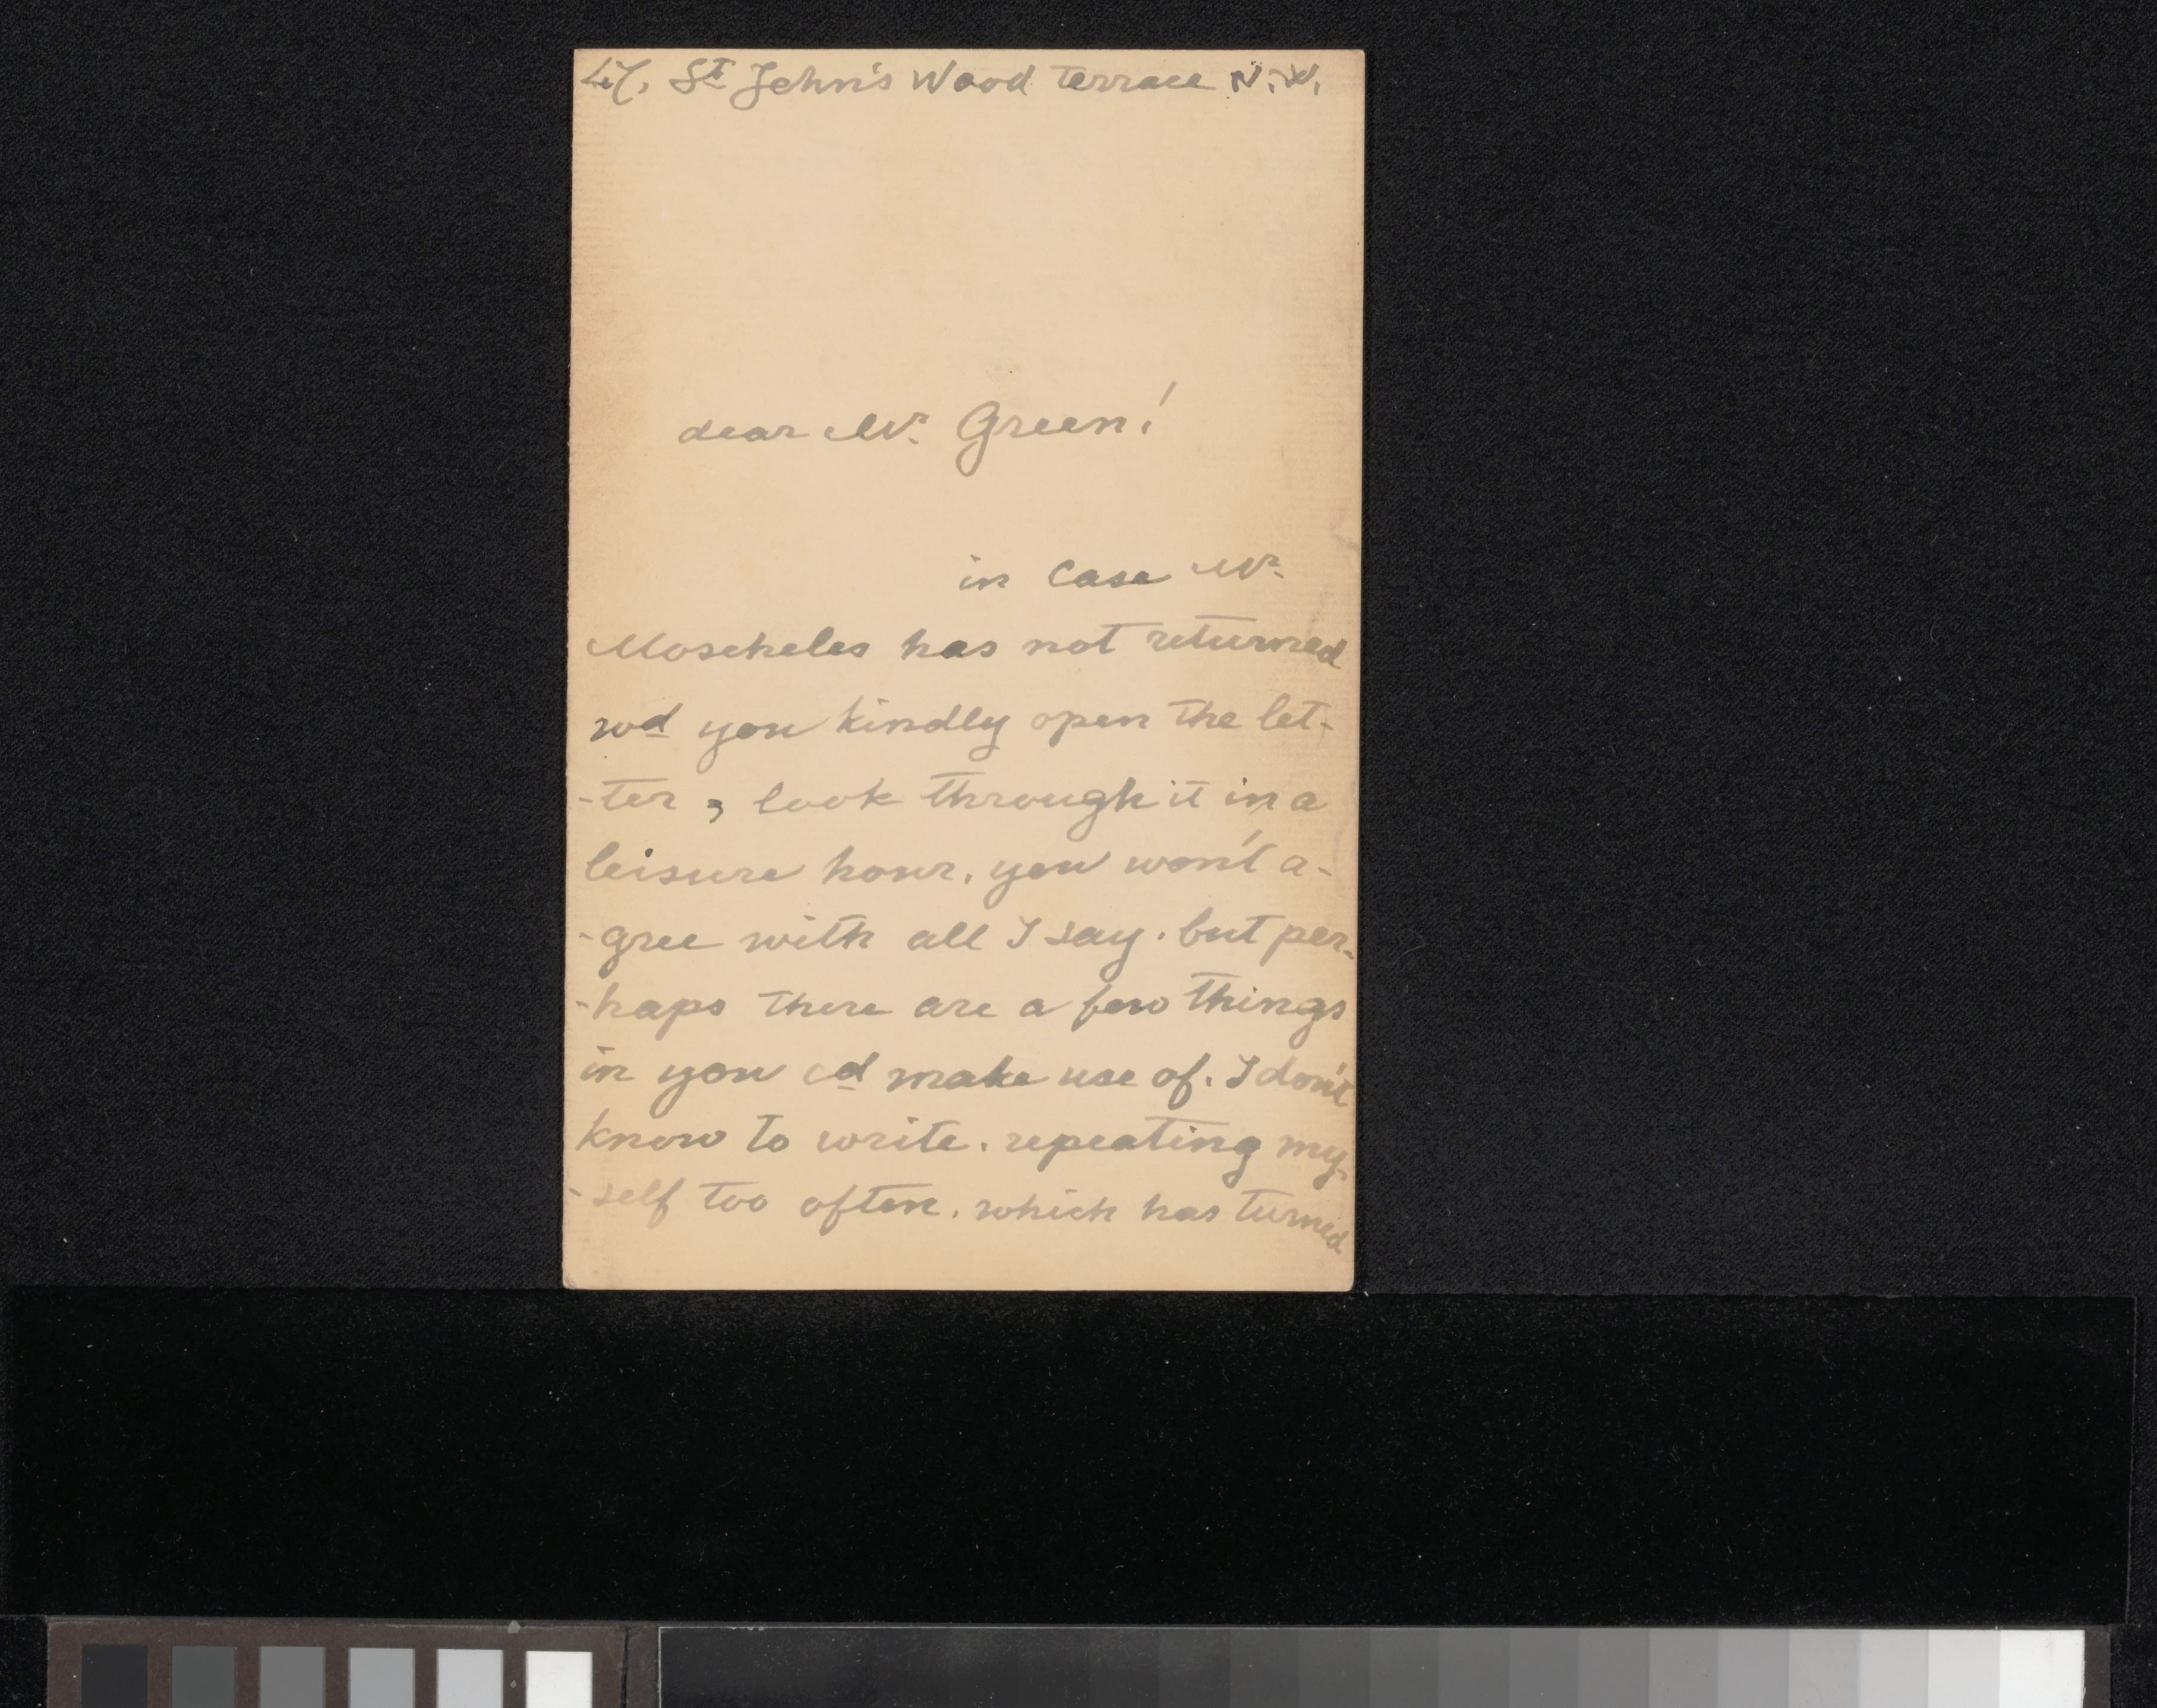 47, St John's Wood terrace N.W.
dear Mr. Green!
in case Mr.
Moscheles has not returned
wd you kindly open the let-
-ter, look through it in a
leisure hour. you won't a-
-gree with all I say. but per-
-haps there are a few things
in you cd make use of. I don't
know to write. repeating my-
-self too often. which has turned